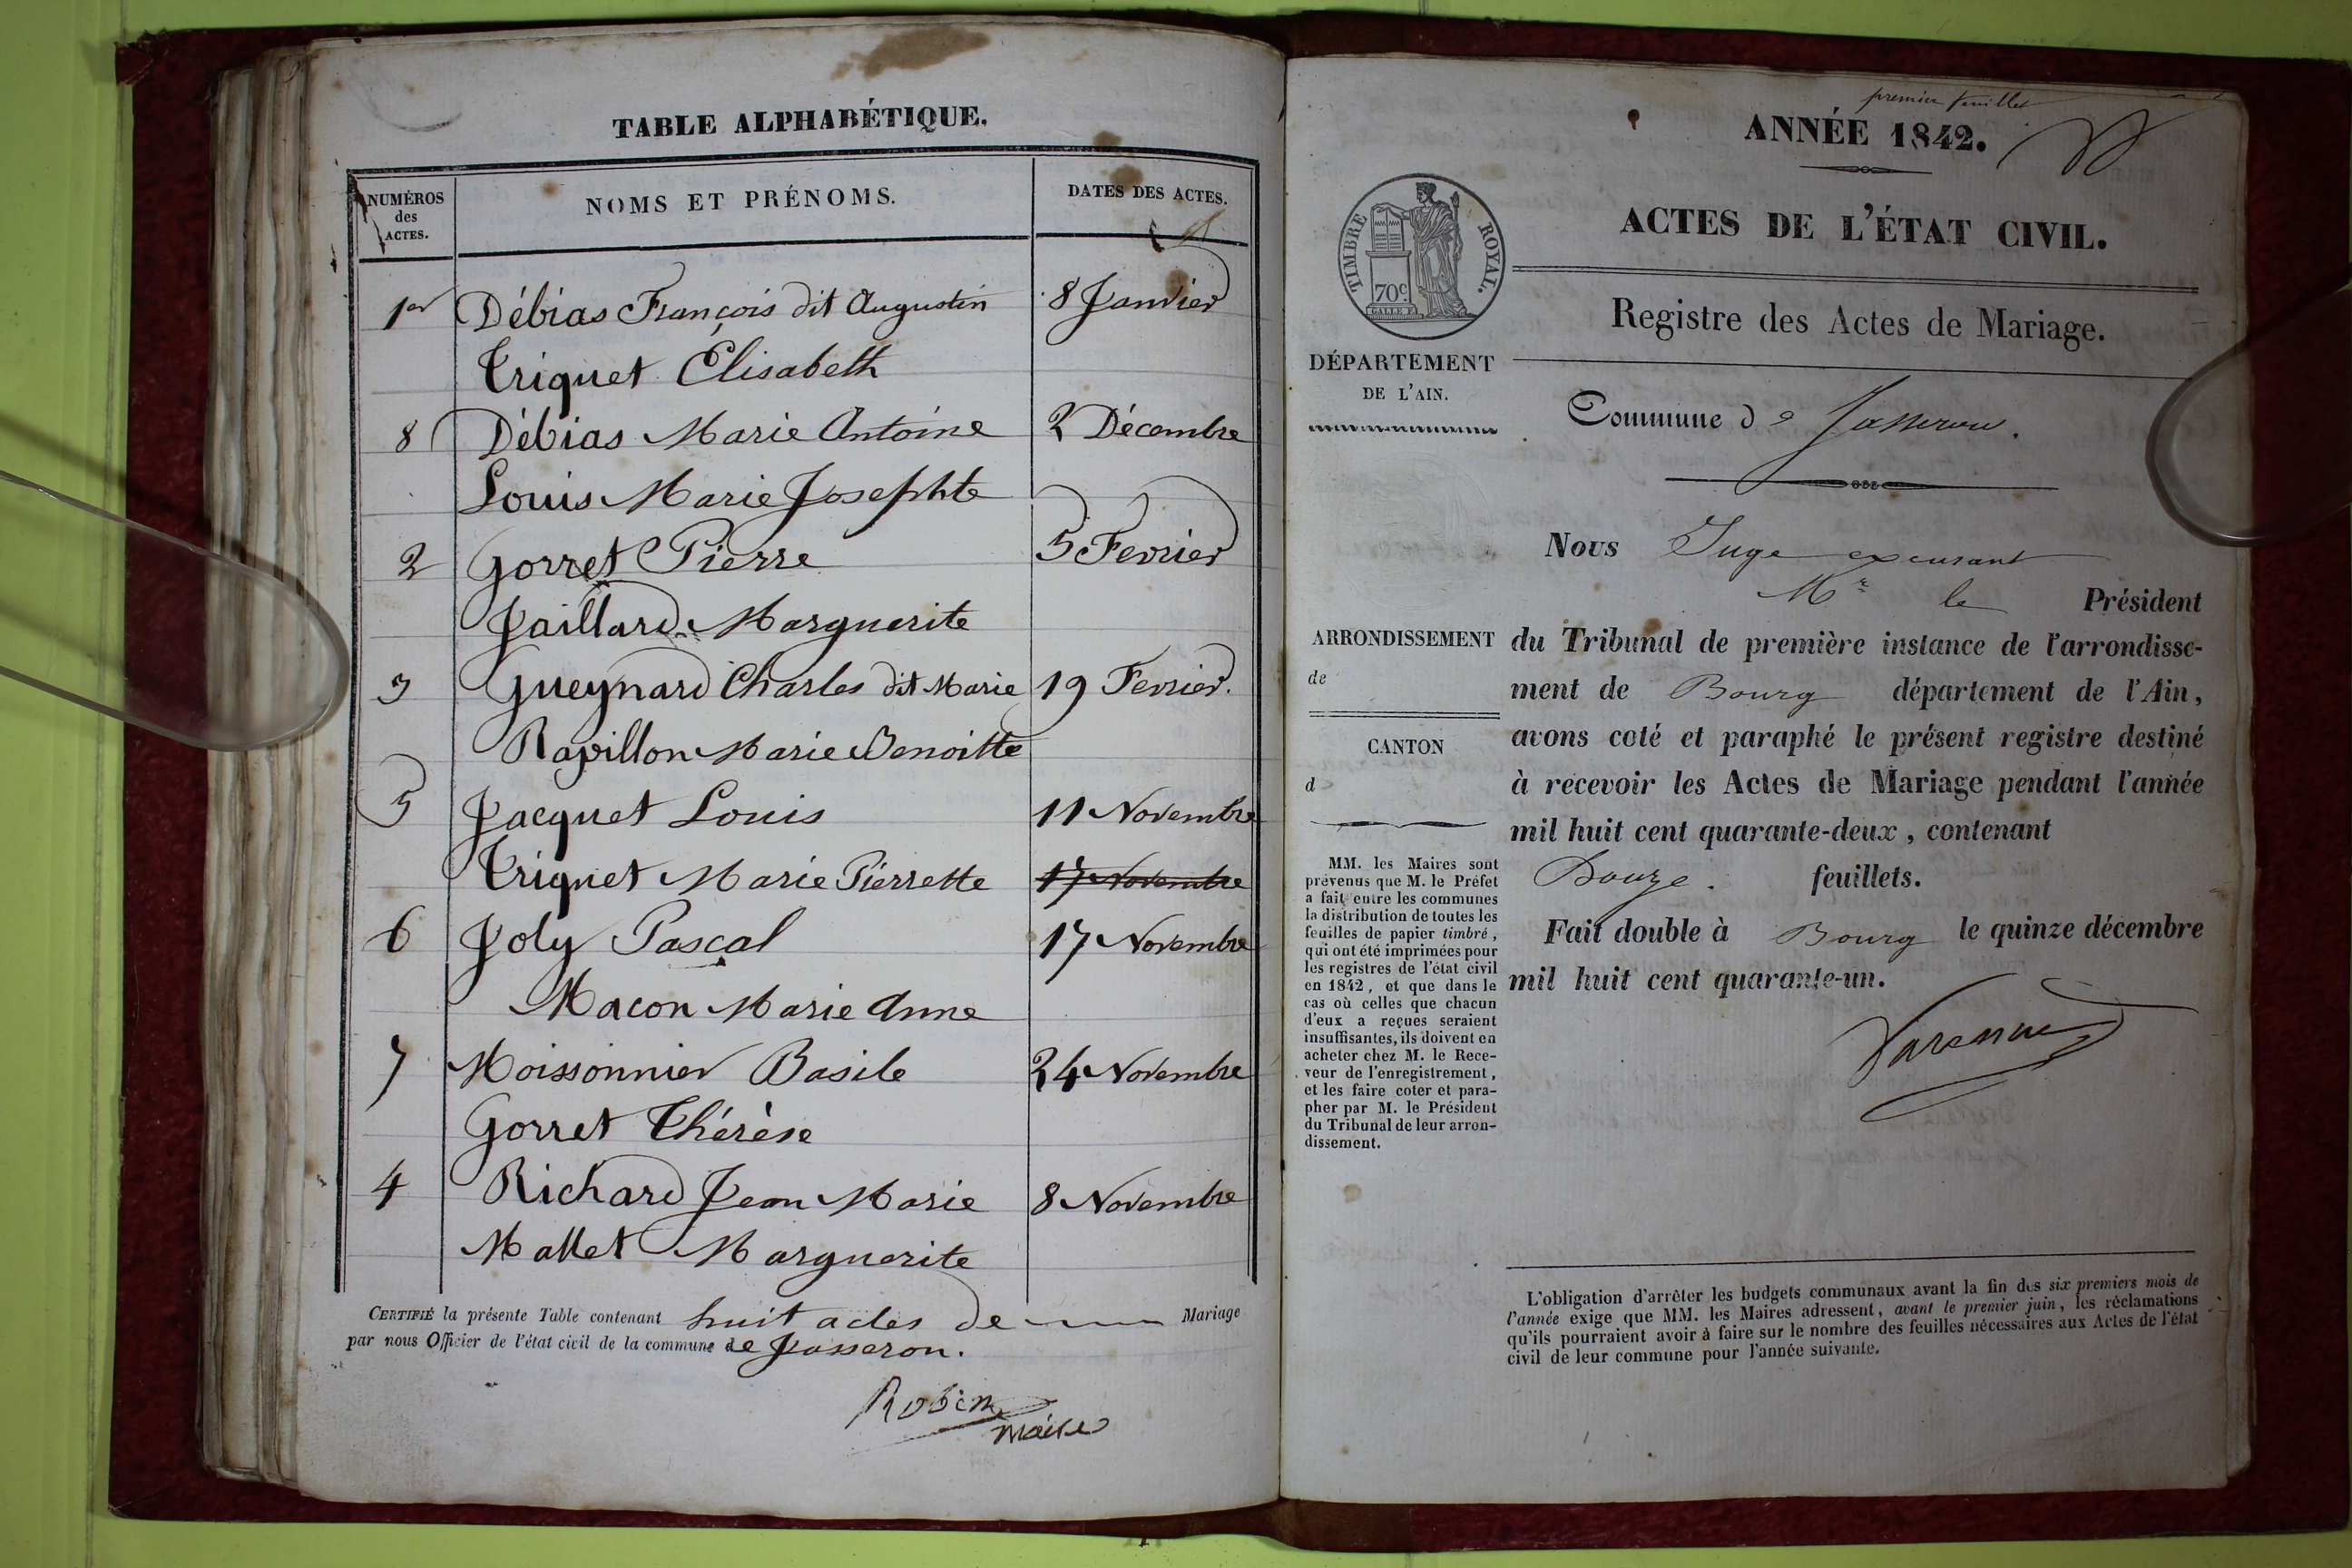 TABLE ALPHABÉTIQUE.
NUMÉROS
des
ACTES.
NOMS ET PRÉNOMS.
DATES DES ACTES.
1er Débias François dit Augustin 8 Janvier
Triquet Elisabeth
8 Débias Marie Antoine 2 Décembre
Louis Marie Josephte
2 Gorret Pierre 5 Fevrier
Jaillard Marguerite
3 Gueynard Charles dit Marie 19 Fevrier.
Ravillon Marie Benoitte
5 Jacquet Louis 11 Novembre
Triquet Marie Pierrette 17 Novembre
6 Joly Pascal 17 Novembre
Macon Marie Anne
7 Moissonnier Basile 24 Novembre
Gorret Thérèse
4 Richard Jean Marie 8 Novembre
Mallet Marguerite
CERTIFIÉ la présente Table contenant huit actes de Mariage
par nous Officier de l'état civil de la commune de Jasseron.
Robin
maire
premier feuillet
ANNÉE 1842.
ACTES DE L'ÉTAT CIVIL.
TIMBRE ROYAL.
70c.
Registre des Actes de Mariage.
DÉPARTEMENT
DE L'AIN.
Commune de Jasseron.
Nous Juge excusant
Mr le Président
ARRONDISSEMENT
de
CANTON
d
du Tribunal de première instance de l'arrondisse-
ment de Bourg département de l'Ain,
avons coté et paraphé le présent registre destiné
à recevoir les Actes de Mariage pendant l'année
mil huit cent quarante-deux, contenant
Douze. feuillets.
Fait double à Bourg le quinze décembre
mil huit cent quarante-un.
MM. les Maires sont
prévenus que M. le Préfet
a fait entre les communes
la distribution de toutes les
feuilles de papier timbré,
qui ont été imprimées pour
les registres de l'état civil
en 1842, et que dans le
cas où celles que chacun
d'eux a reçues seraient
insuffisantes, ils doivent en
acheter chez M. le Rece-
veur de l'enregistrement,
et les faire coter et para-
pher par M. le Président
du Tribunal de leur arron-
dissement.
L'obligation d'arrêter les budgets communaux avant la fin des six premiers mois de
l'année exige que MM. les Maires adressent, avant le premier juin, les réclamations
qu'ils pourraient avoir à faire sur le nombre des feuilles nécessaires aux Actes de l'état
civil de leur commune pour l'année suivante.